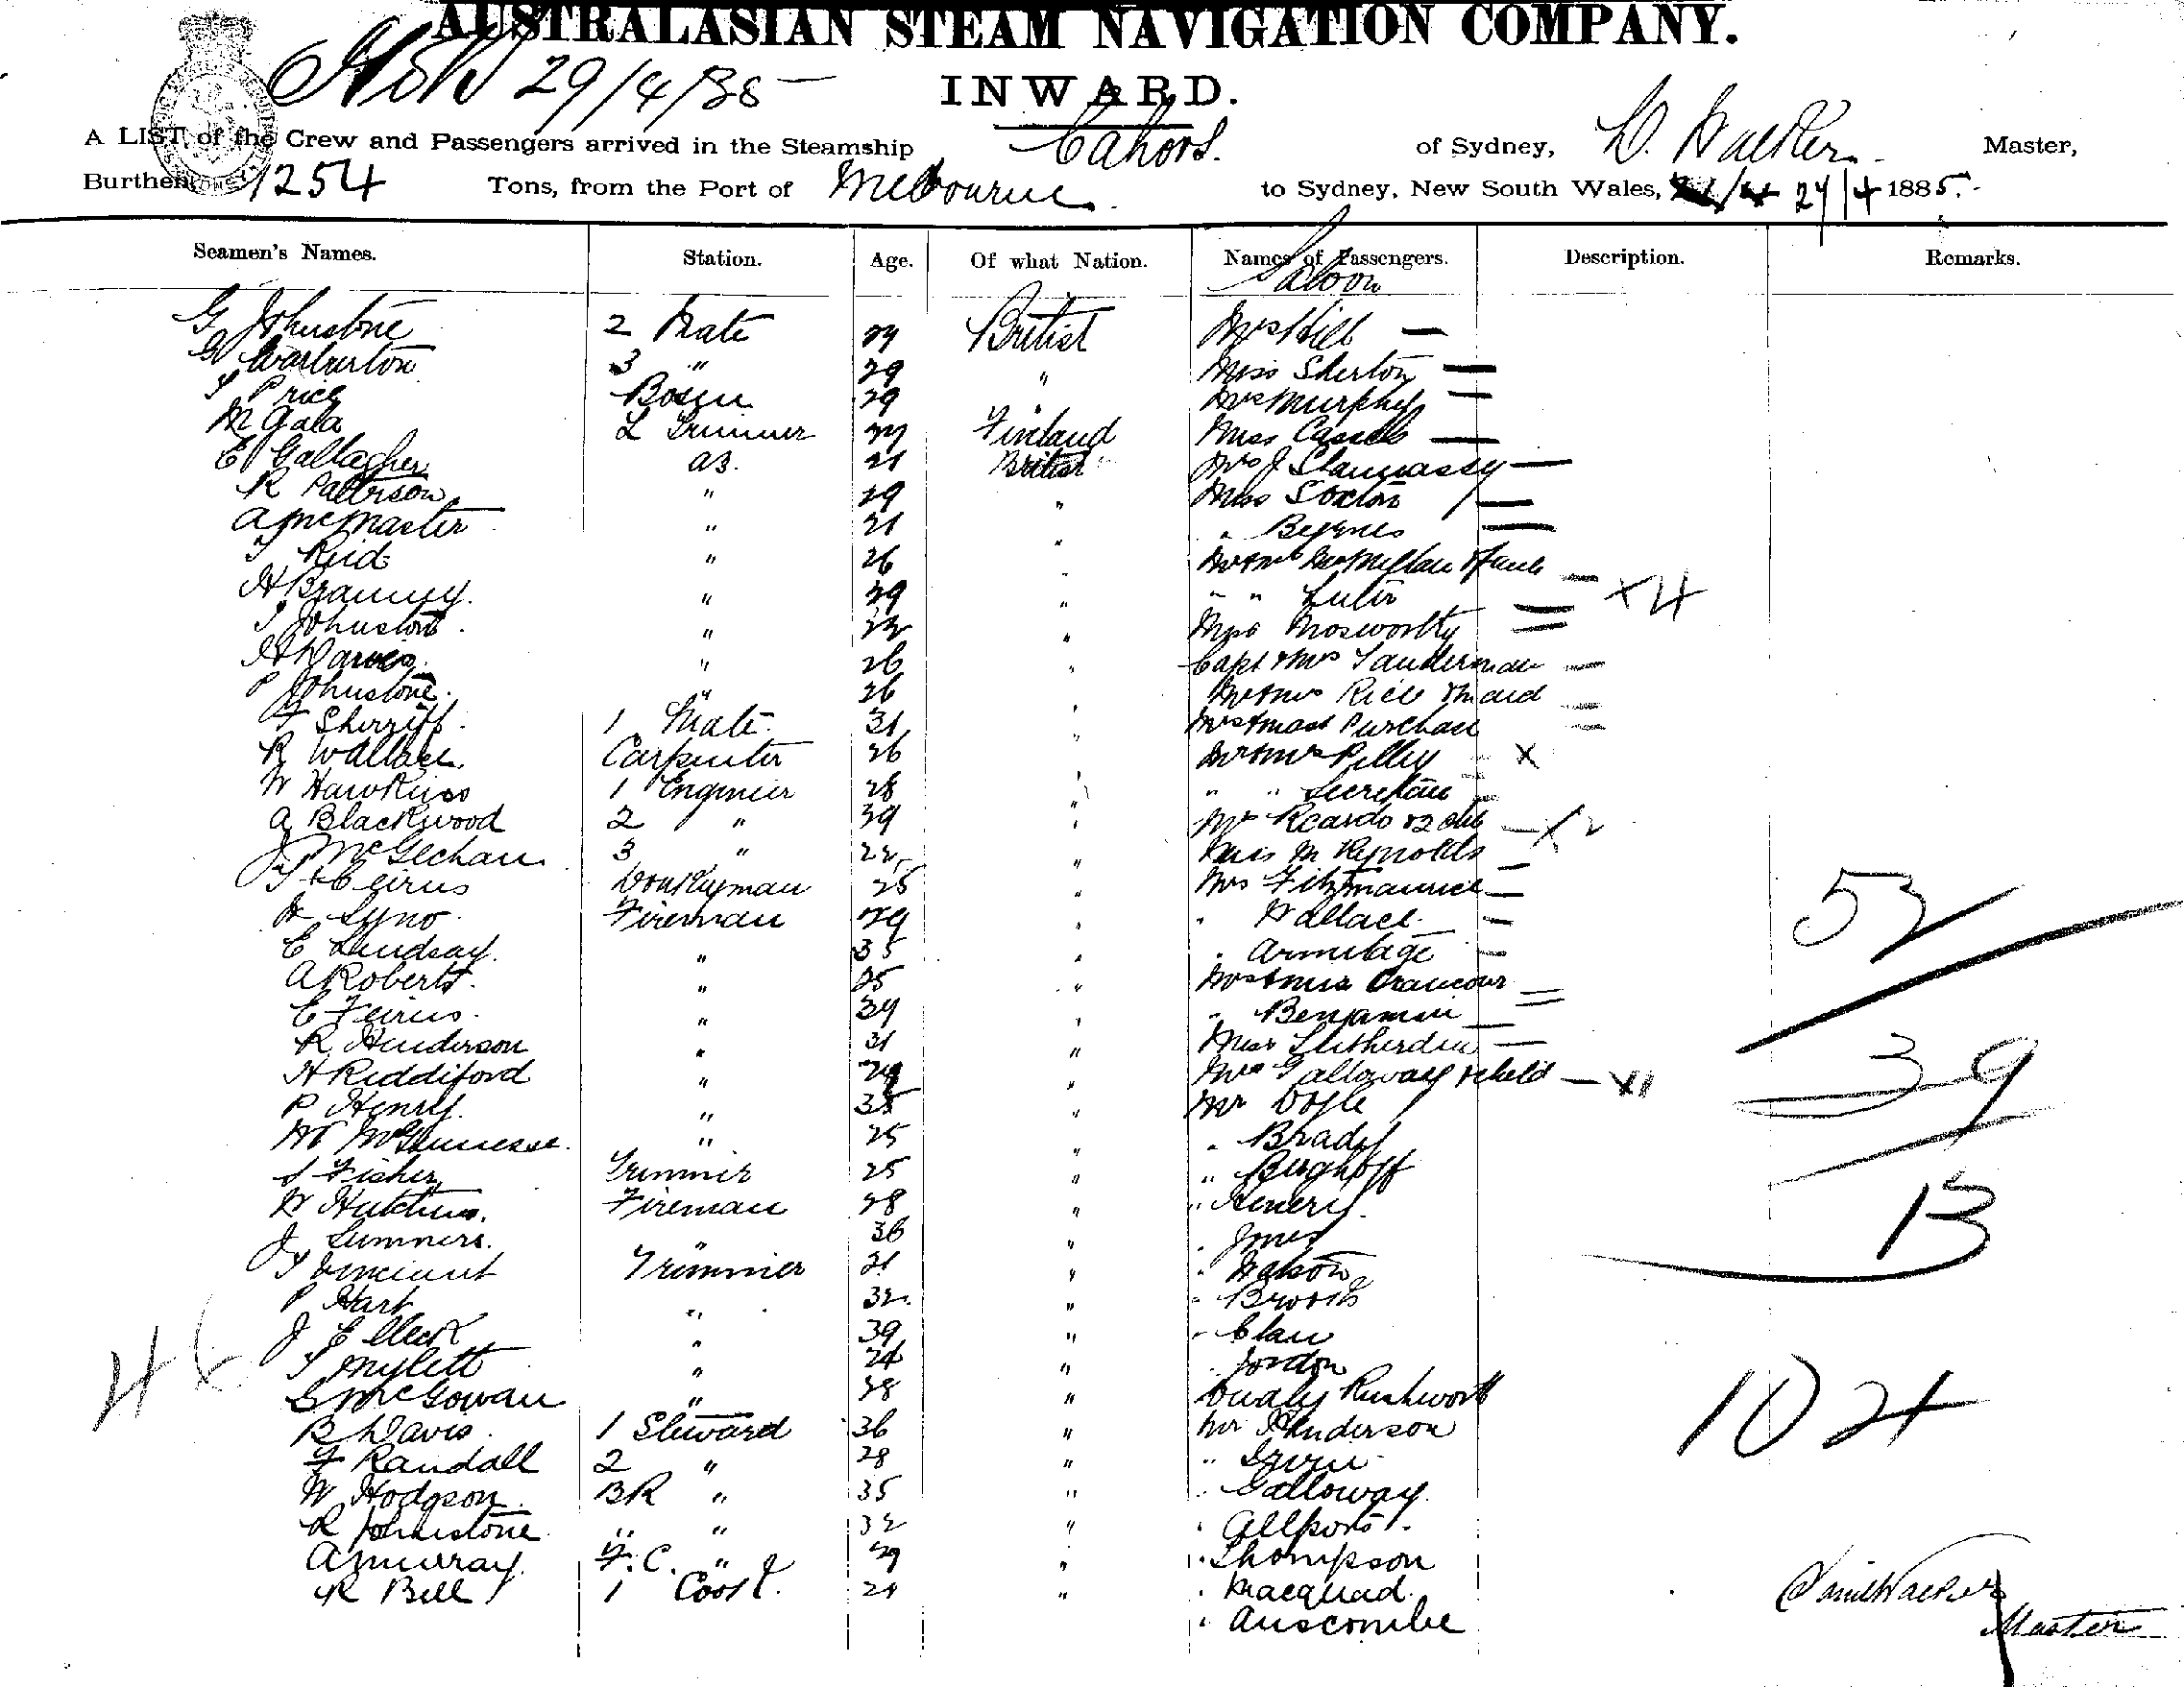 AUSTRALASIAN STEAM NAVIGATION COMPANY.
29/4/85
INWARD.
A LIST of the Crew and Passengers arrived in the Steamship Cahors. of Sydney, D. Walker. Master,
Burthen 1254 Tons, from the Port of Melbourne. to Sydney, New South Wales, 29/4 1885.
Seamen's Names. Station. Age. Of what Nation. Names of Passengers. Description. Remarks.
Saloon
G Johnstone 2 Mate 29 British Mrs Hill
G Warburton 3 " 29 " Miss Sherton
Price Bosun 29 Mrs Murphy
M Gala L Trimmer Finland Miss Cassels
E Gallagher AB. 21 British Mrs J
R Patterson " 29 " Miss Soxton
A McMaster " 21 " " Beyrnes
T Reid " 26 "
H Branny. " 29 " " "
J Johnston. " " Mrs Mosworthy
H Davies. " 26 " Capt & Mrs Tauderman
P Johnstone. " 26 " Mr & Mrs Rice & maid
F Sherriff. 1 Mate. 31 " Mrs & Mast Purchas
R Wallace. Carpenter 26 " Mr & Mrs Pilley
W Hawkins 1 Engineer 28 " " "
A Blackwood 2 " 39 " Mrs Ricardo & 2 chil
J McGechan 3 " 22 " Miss M Reynolds
Donkeyman 25 " Mrs Fitzmaurice
Fireman 29 " " Wallace
E Lindsay. " 35 " " Armitage
A Roberts. " 25 "
E " 39 " " Benjamin
R Henderson " 31 " Miss
H Riddiford " 29 " Mrs Galloway & child
P Henry. " 35 " Mr Doyle
" 25 " " Brady
J Fisher Trimmer 25 " " Berghoff
W Hutchins. Fireman 28 " " Henery
J Summers. " 36 " " Jones
Trimmer 21 " " Watson
P Hart " 32 " " Brooks
J E Meek " 39 " "
T Mylett " 24 " " Jordon
S McGowan " 28 " Rushworth
B Davis. 1 Steward 36 " Mr Henderson
F Randall 2 " 28 " " Irvin
W Hodgson. BR " 35 " " Galloway.
R Johnstone. " " 32 " " Allport.
A Murray. F.C. " 29 " " Thompson
R Bell 1 Cook. 24 " " Macquad.
" Anscombe
X4
X
X2
X1
52
39
13
104
Daniel Walker
Master